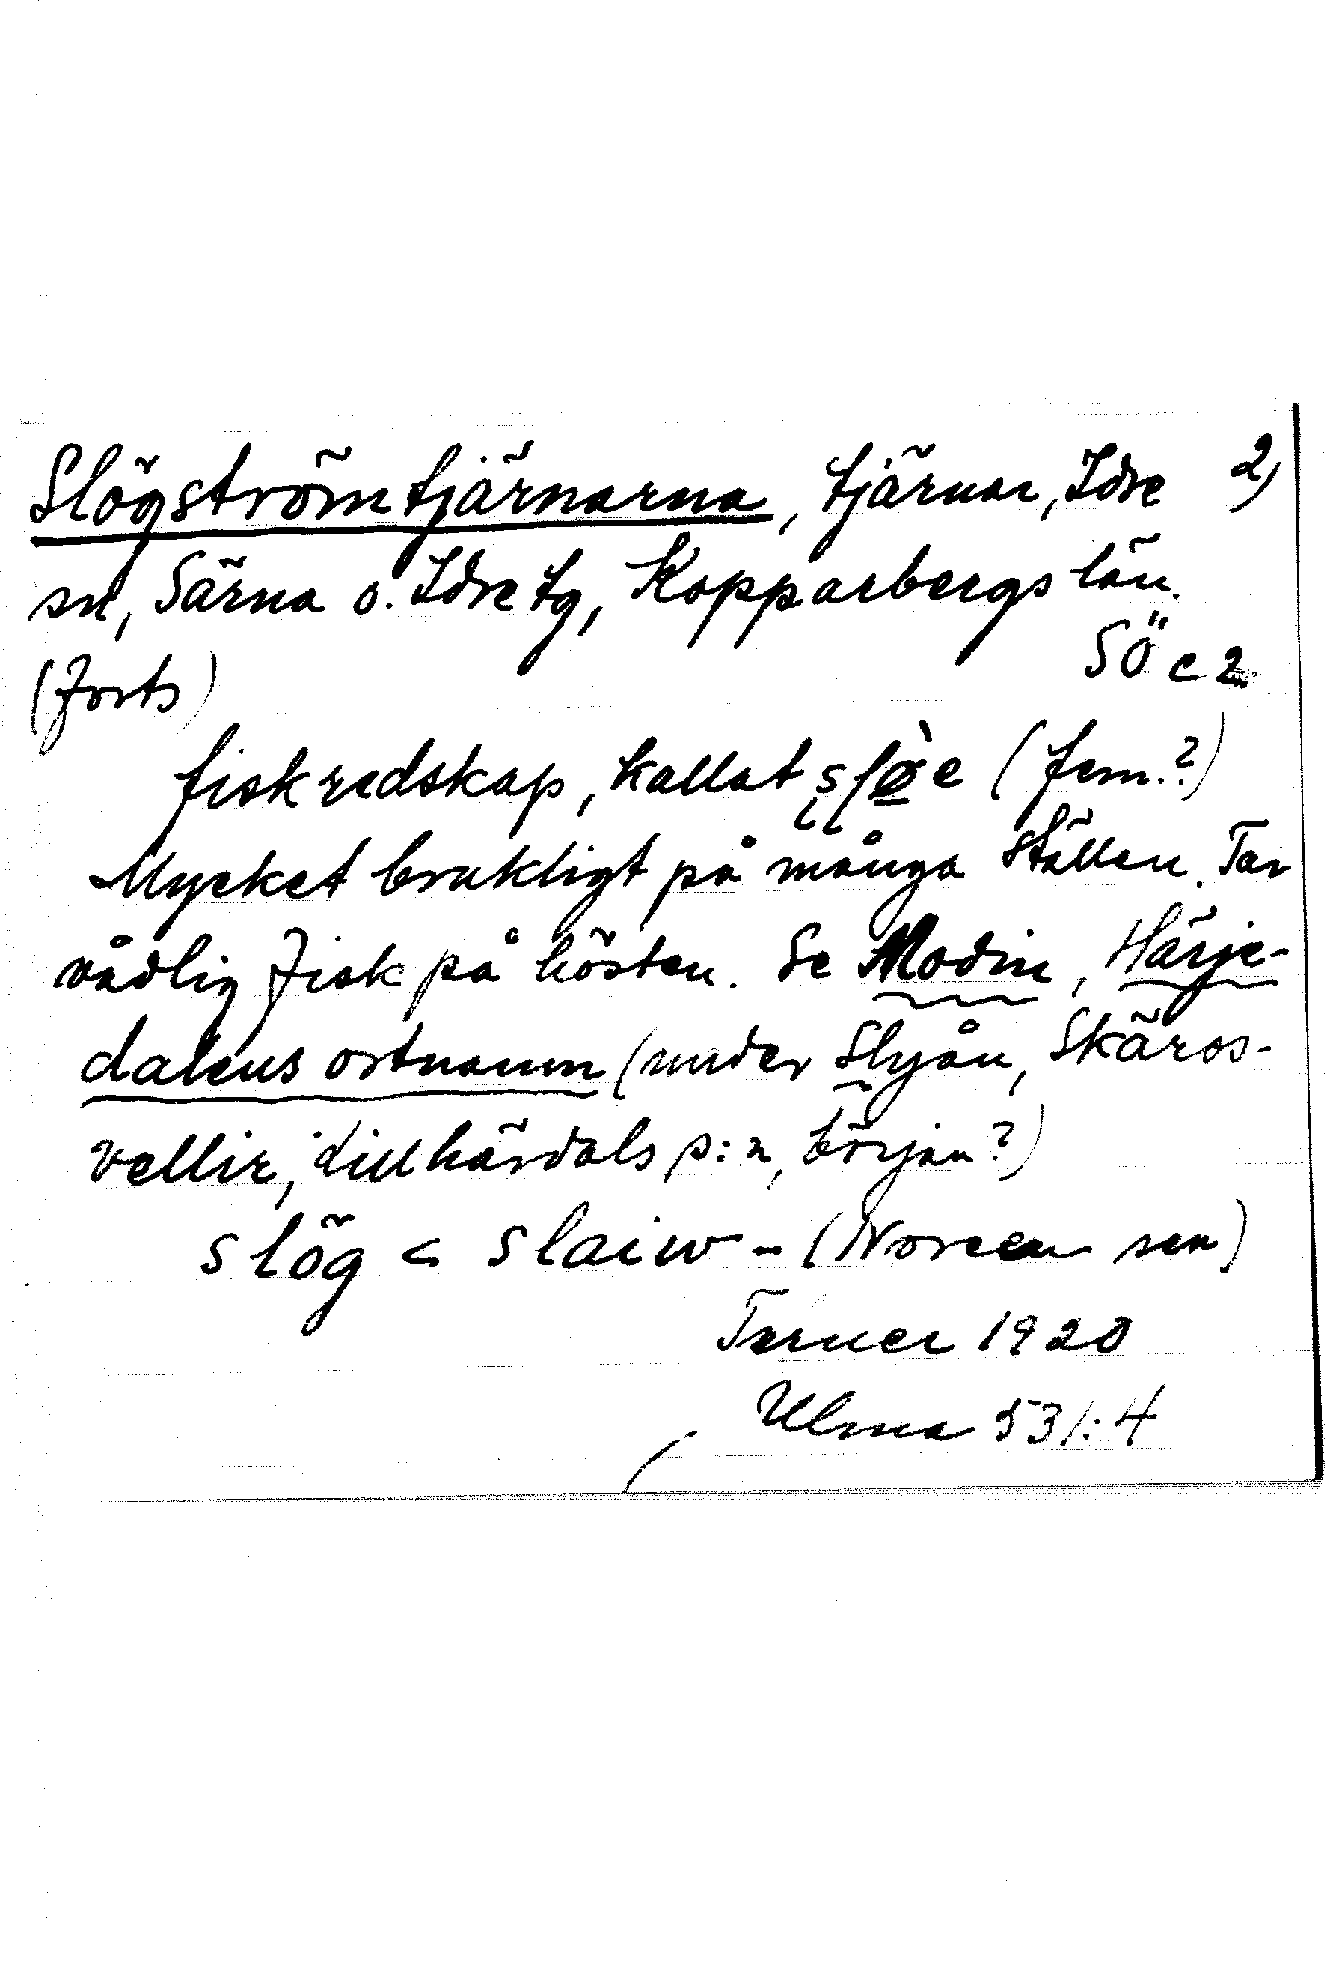 Slögströmtjärnarna, tjärnar, Idre 2)
sn, Särna o. Idre tg, Kopparbergs län.
(forts) SÖ c 2
fiskredskap, kallat sløe (fem.?)
Mycket brukligt på många ställen. Tar
vådlig fisk på hösten. Se Modin, Härje-
dalens ortnamn (under Slyån, Skäros-
vellir, Lillhärdals s:n, början?)
slög < slaiw- (Noreen sen)
Tarner 1920
Ulma 531:4